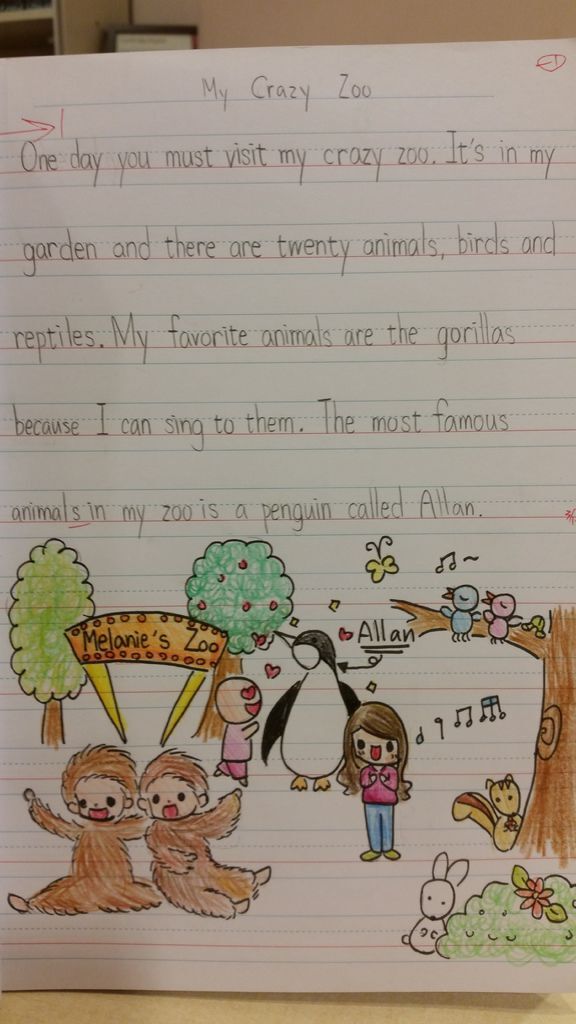 My Crazy Zoo
One day you must visit my crazy zoo. It's in my
garden and there are twenty animals, birds and
reptiles. My favorite animals are the gorillas
because I can sing to them. The most famous
animals in my zoo is a penguin called Allan.
Melanie's Zoo
Allan